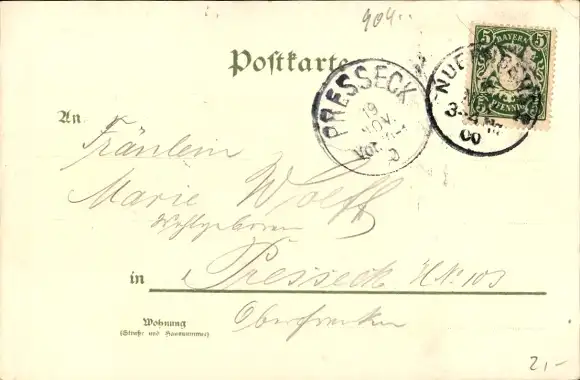 904..
Postkarte
BAYERN
5 5
PFENNIG
PRESSECK
19
NOV.
NUE
3-4 Nm
00
An
Fräulein
Marie Wolff
Wohlgeboren
in Presseck H.Nr. 103
Wohnung
(Straße und Hausnummer)
Oberfranken
2,-